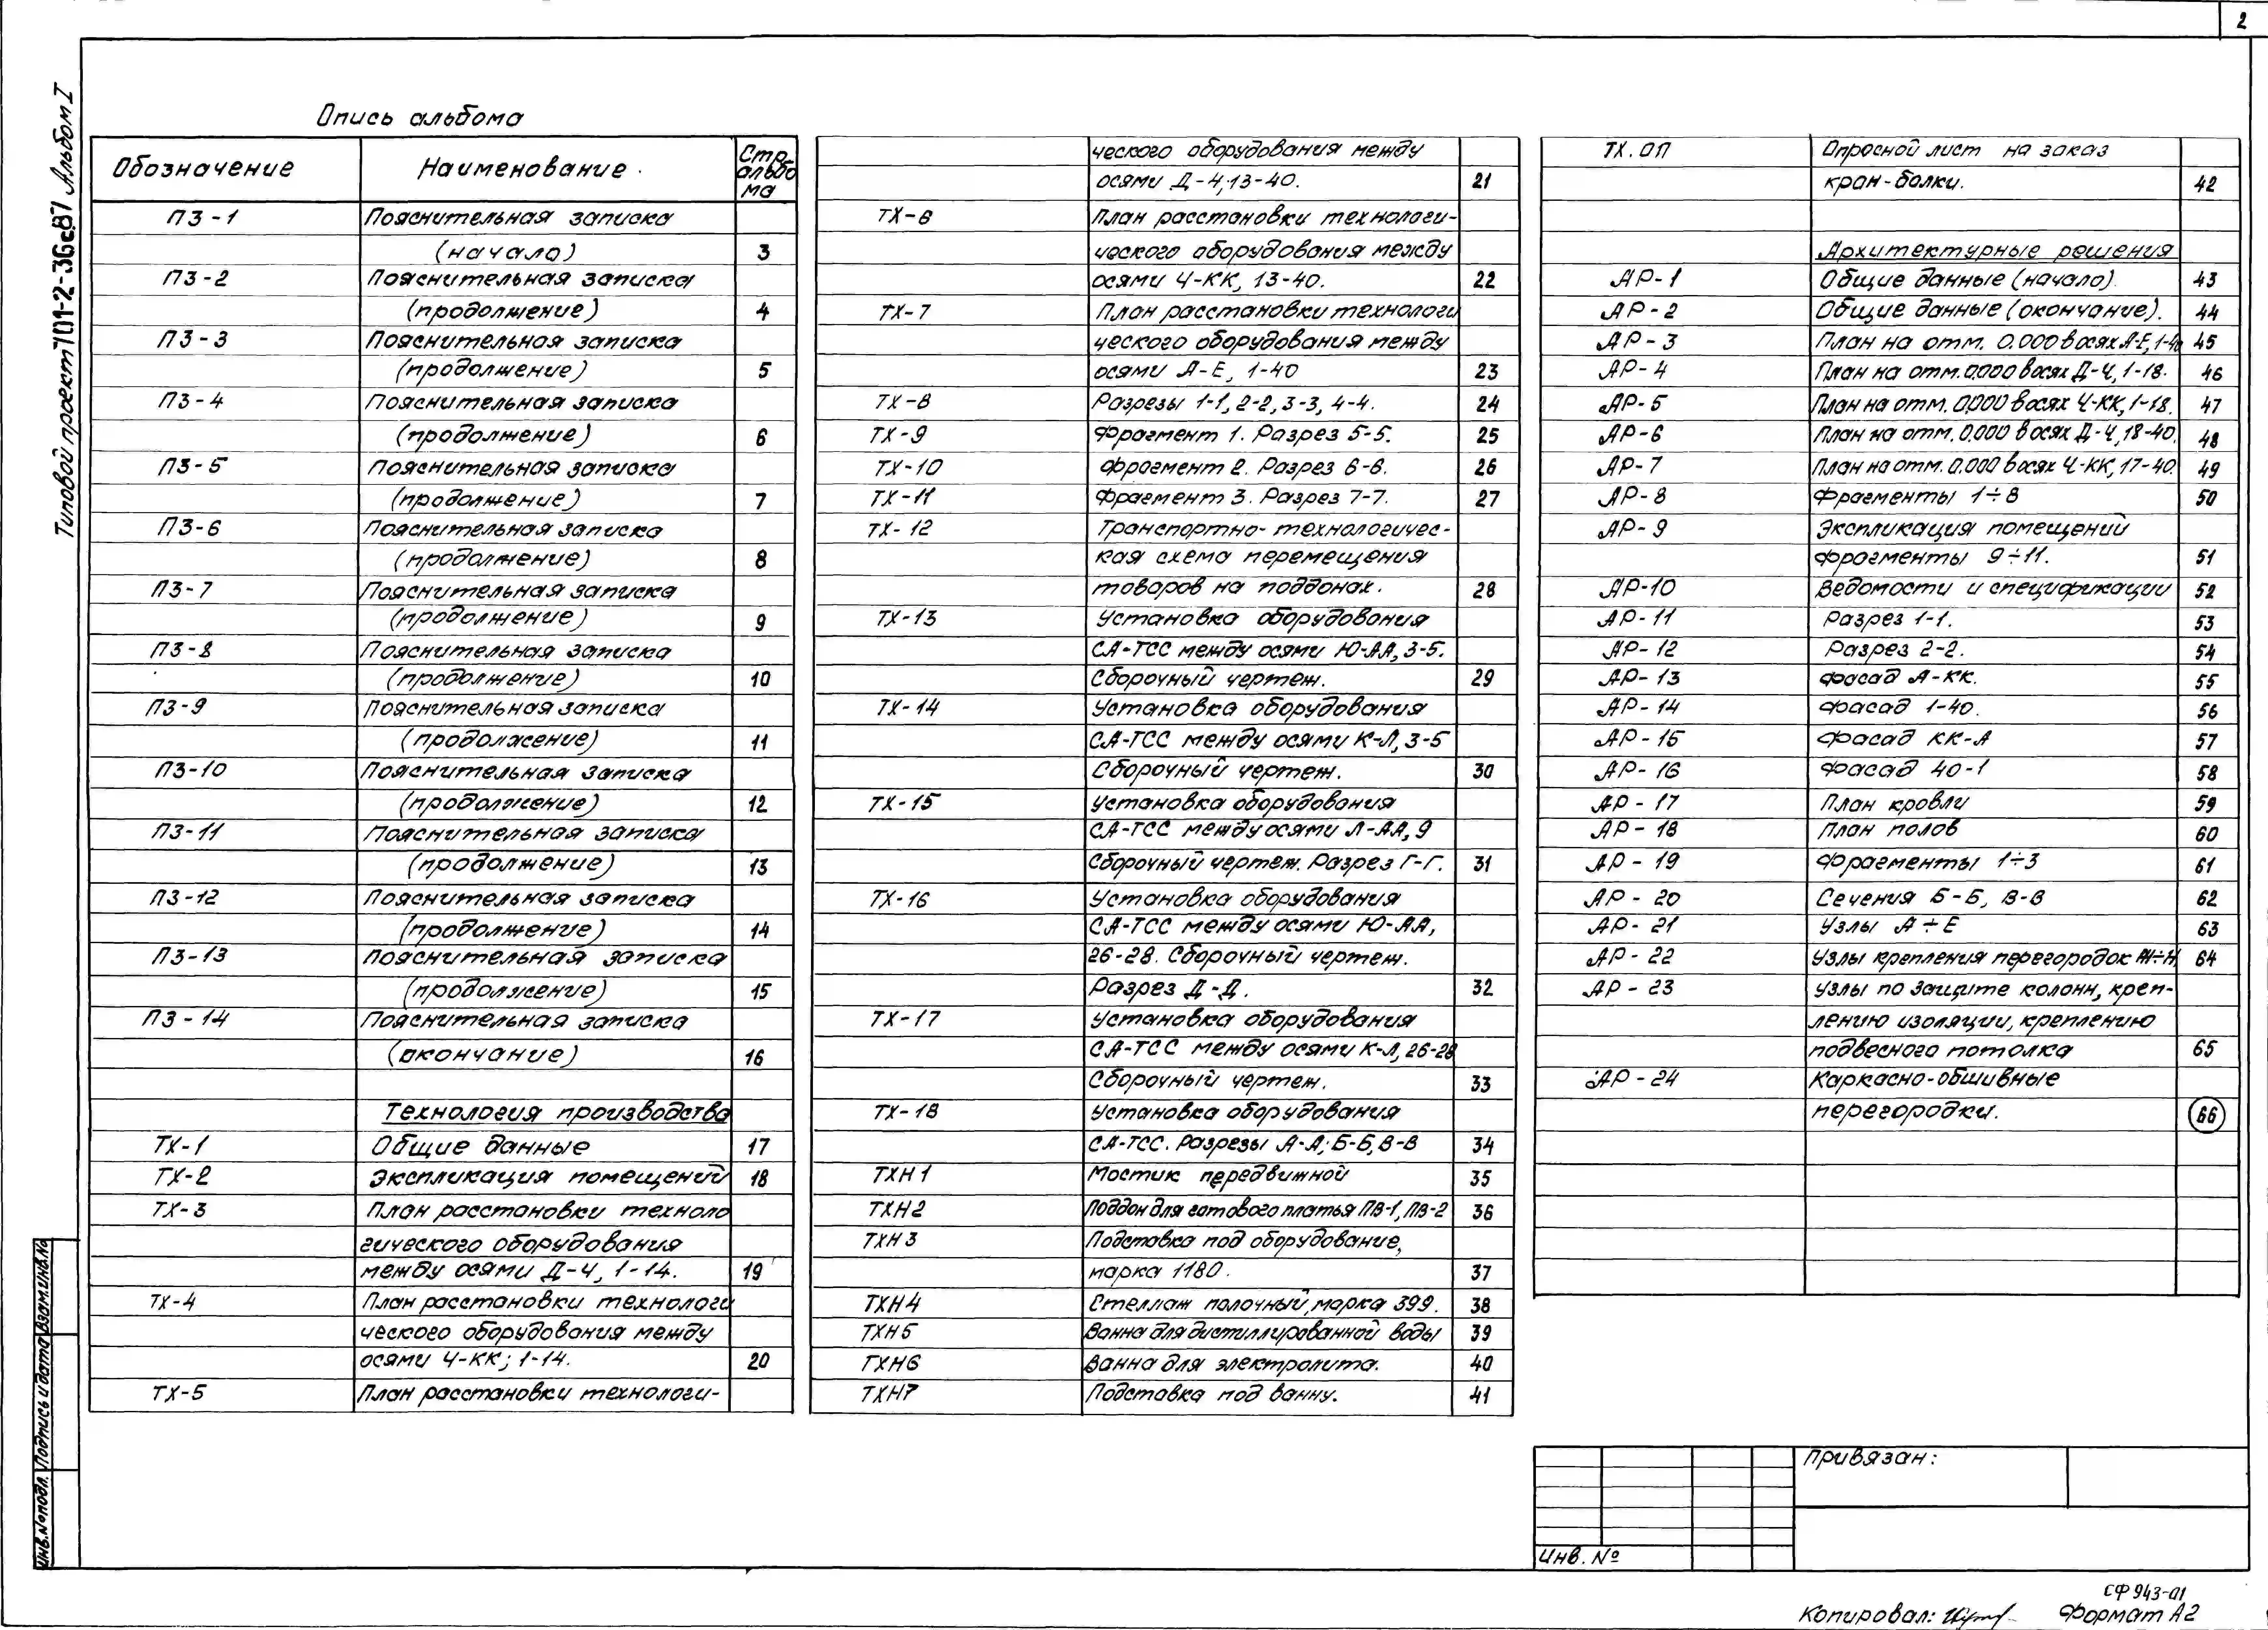 2
Типовой проект 701-2-36с.87 Альбом I
Опись альбома
Обозначение Наименование Стр. альбо ма
ПЗ-1 Пояснительная записка
(начало) 3
ПЗ-2 Пояснительная записка
(продолжение) 4
ПЗ-3 Пояснительная записка
(продолжение) 5
ПЗ-4 Пояснительная записка
(продолжение) 6
ПЗ-5 Пояснительная записка
(продолжение) 7
ПЗ-6 Пояснительная записка
(продолжение) 8
ПЗ-7 Пояснительная записка
(продолжение) 9
ПЗ-8 Пояснительная записка
(продолжение) 10
ПЗ-9 Пояснительная записка
(продолжение) 11
ПЗ-10 Пояснительная записка
(продолжение) 12
ПЗ-11 Пояснительная записка
(продолжение) 13
ПЗ-12 Пояснительная записка
(продолжение) 14
ПЗ-13 Пояснительная записка
(продолжение) 15
ПЗ-14 Пояснительная записка
(окончание) 16
Технология производства
ТХ-1 Общие данные 17
ТХ-2 Экспликация помещений 18
ТХ-3 План расстановки техноло
гического оборудования
между осями Д-Ч, 1-14. 19
ТХ-4 План расстановки технологи
ческого оборудования между
осями Ч-КК; 1-14. 20
ТХ-5 План расстановки технологи-
ческого оборудования между
осями Д-Ч, 13-40. 21
ТХ-6 План расстановки технологи-
ческого оборудования между
осями Ч-КК, 13-40. 22
ТХ-7 План расстановки технологи
ческого оборудования между
осями А-Е, 1-40 23
ТХ-8 Разрезы 1-1, 2-2, 3-3, 4-4. 24
ТХ-9 Фрагмент 1. Разрез 5-5. 25
ТХ-10 Фрагмент 2. Разрез 6-6. 26
ТХ-11 Фрагмент 3. Разрез 7-7. 27
ТХ-12 Транспортно-технологичес-
кая схема перемещения
товаров на поддонах. 28
ТХ-13 Установка оборудования
СА-ТСС между осями Ю-АА, 3-5.
Сборочный чертеж. 29
ТХ-14 Установка оборудования
СА-ТСС между осями К-Л, 3-5
Сборочный чертеж. 30
ТХ-15 Установка оборудования
СА-ТСС между осями Л-АА, 9
Сборочный чертеж. Разрез Г-Г. 31
ТХ-16 Установка оборудования
СА-ТСС между осями Ю-АА,
26-28. Сборочный чертеж.
Разрез Д-Д. 32
ТХ-17 Установка оборудования
СА-ТСС между осями К-Л, 26-28
Сборочный чертеж. 33
ТХ-18 Установка оборудования
СА-ТСС. Разрезы А-А; Б-Б, В-В 34
ТХН1 Мостик передвижной 35
ТХН2 Поддон для готового платья ПВ-1, ПВ-2 36
ТХН3 Подставка под оборудование,
марка 1180. 37
ТХН4 Стеллаж полочный, марка 399. 38
ТХН5 Ванна для дистиллированной воды 39
ТХН6 Ванна для электролита. 40
ТХН7 Подставка под ванну. 41
ТХ.ОП Опросной лист на заказ
кран-балки. 42
Архитектурные решения
АР-1 Общие данные (начало). 43
АР-2 Общие данные (окончание). 44
АР-3 План на отм. 0.000 в осях А-Е, 1-40 45
АР-4 План на отм. 0.000 в осях Д-Ч, 1-18. 46
АР-5 План на отм. 0.000 в осях Ч-КК, 1-18. 47
АР-6 План на отм. 0.000 в осях Д-Ч, 18-40. 48
АР-7 План на отм. 0.000 в осях Ч-КК, 17-40. 49
АР-8 Фрагменты 1÷8 50
АР-9 Экспликация помещений
фрагменты 9÷11. 51
АР-10 Ведомости и спецификации 52
АР-11 Разрез 1-1. 53
АР-12 Разрез 2-2. 54
АР-13 Фасад А-КК. 55
АР-14 Фасад 1-40. 56
АР-15 Фасад КК-А 57
АР-16 Фасад 40-1 58
АР-17 План кровли 59
АР-18 План полов 60
АР-19 Фрагменты 1÷3 61
АР-20 Сечения Б-Б, В-В 62
АР-21 Узлы А÷Е 63
АР-22 Узлы крепления перегородок Ж÷Н 64
АР-23 Узлы по защите колонн, креп-
лению изоляции, креплению
подвесного потолка 65
АР-24 Каркасно-обшивные
перегородки. 66
Привязан:
Инв. №
Инв.№подл. Подпись и дата Взам.инв.№
СФ 943-01
Копировал: Формат А2